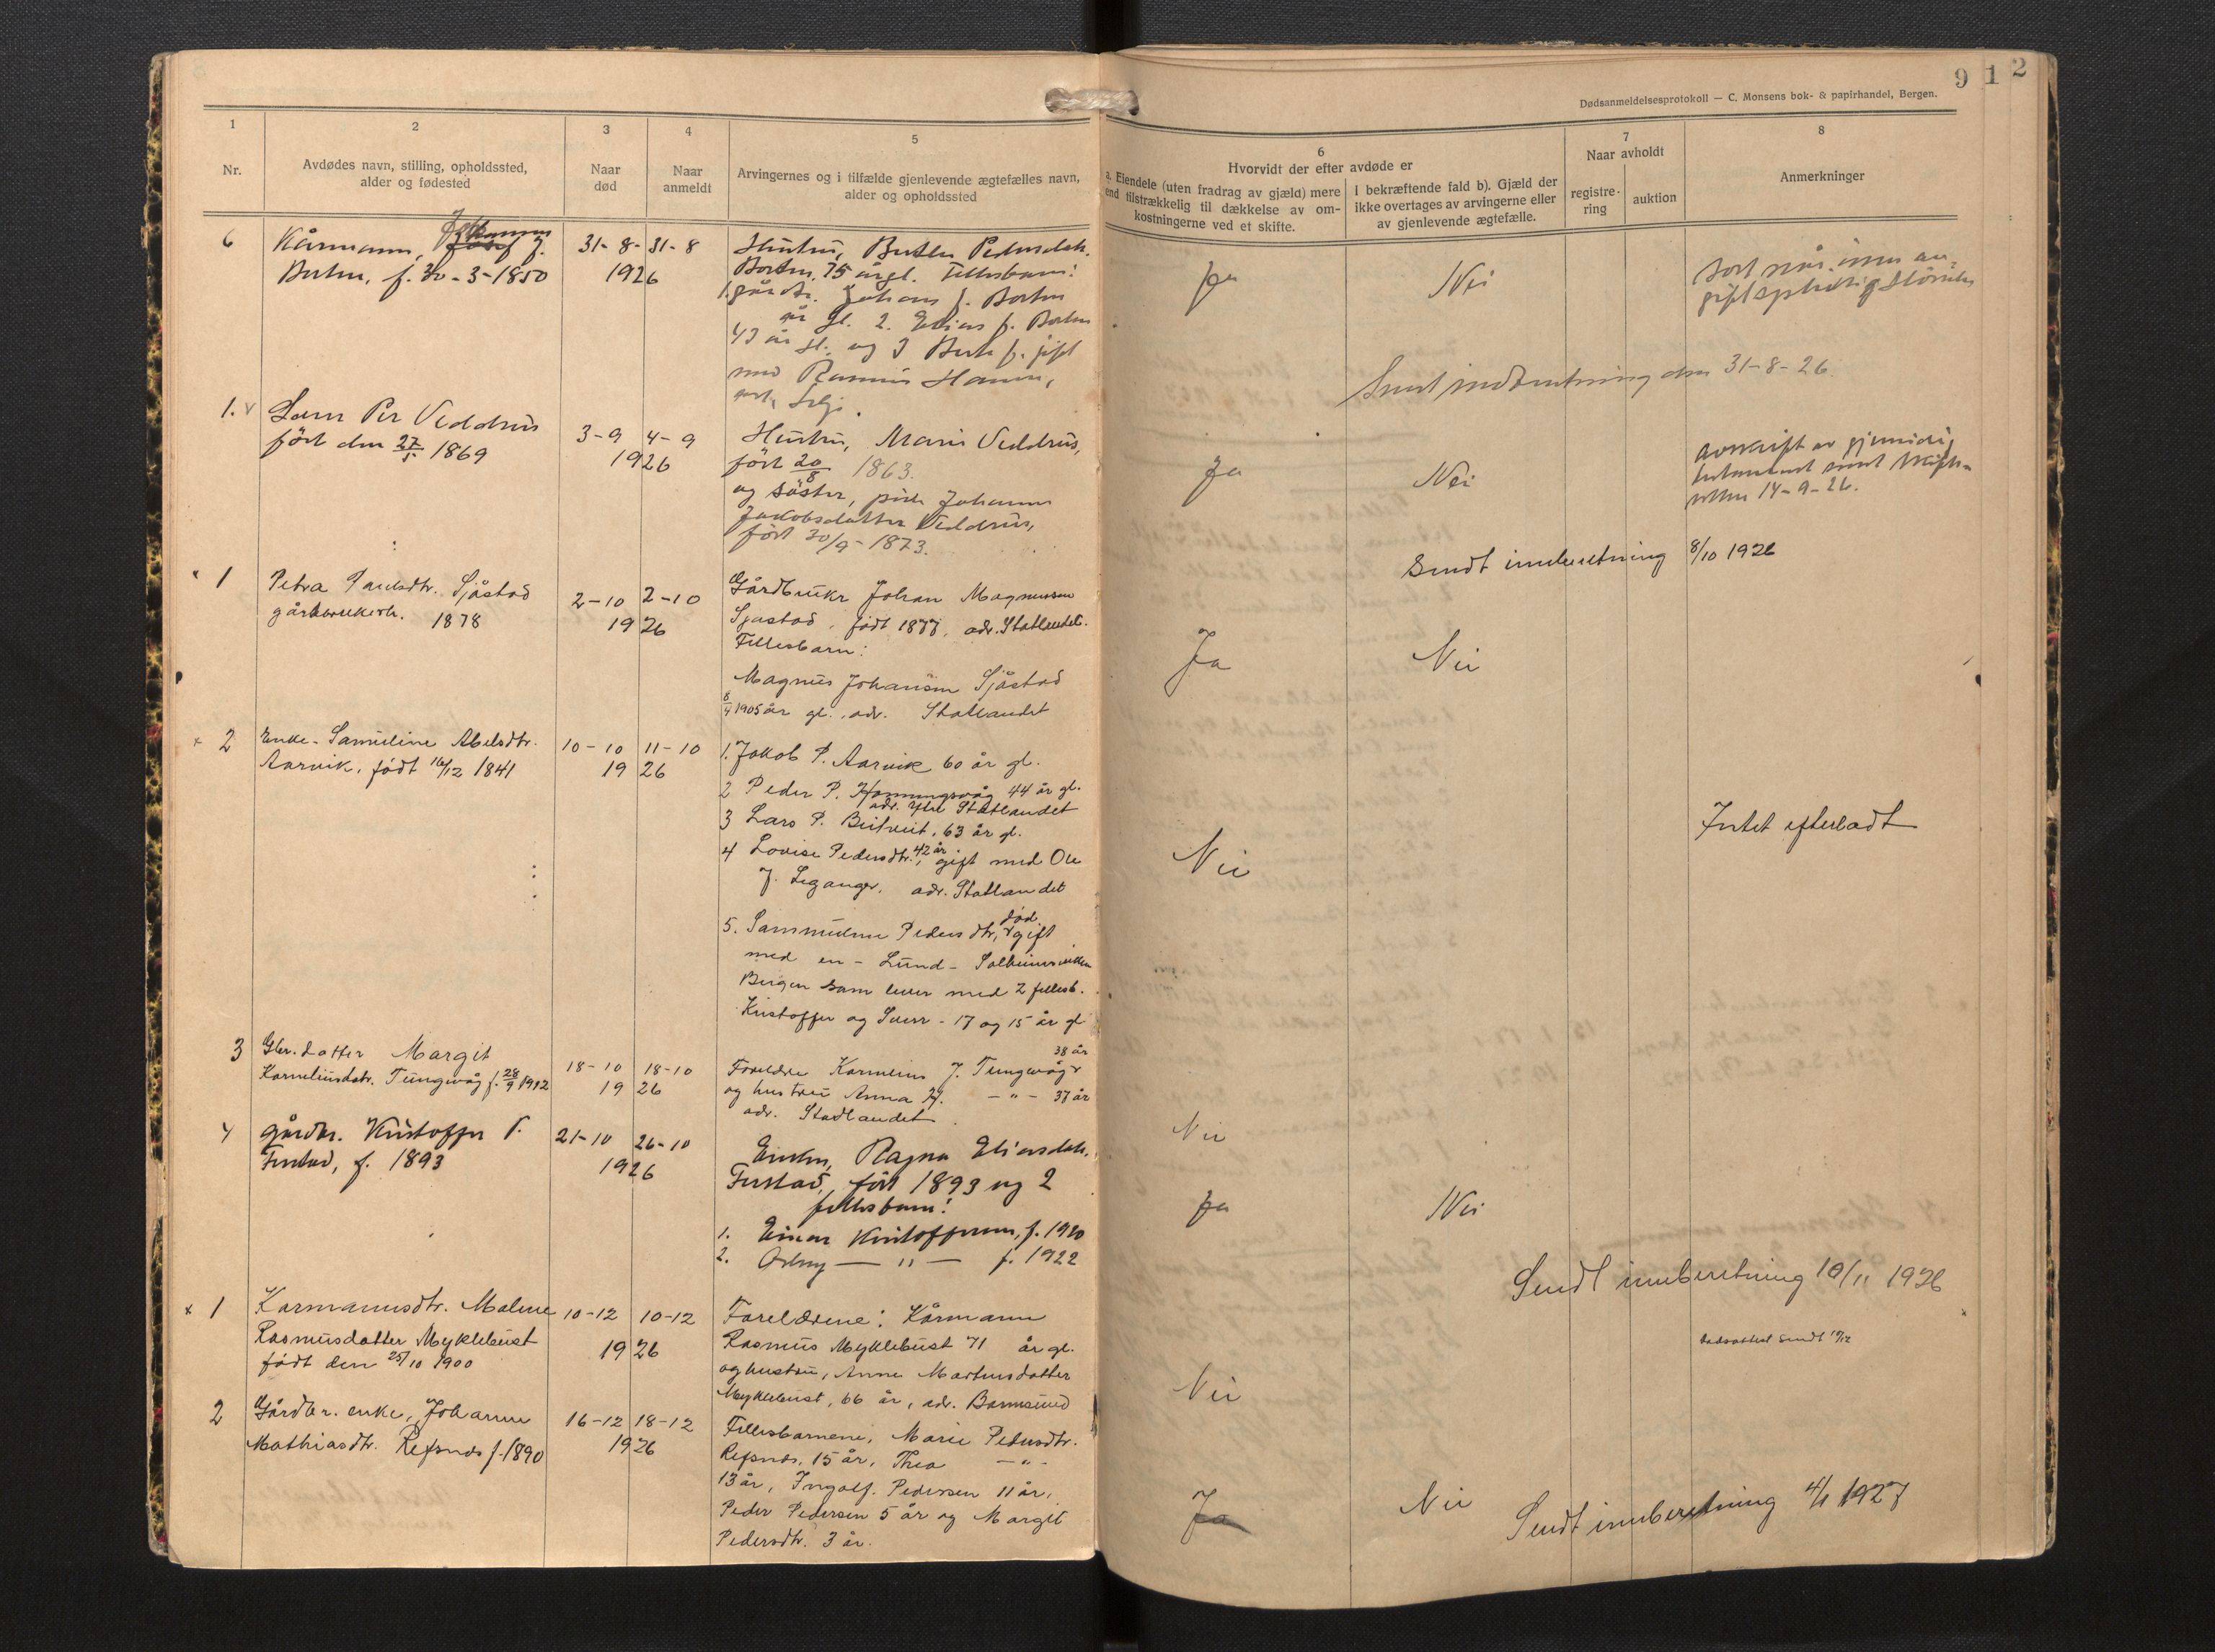 9 1 2
Dødsanmeldelsesprotokoll — C. Monsens bok- & papirhandel, Bergen.
1
Nr.
2
Avdødes navn, stilling, opholdssted,
alder og fødested
3
Naar
død
4
Naar
anmeldt
5
Arvingernes og i tilfælde gjenlevende ægtefælles navn,
alder og opholdssted
6
Hvorvidt der efter avdøde er
a. Eiendele (uten fradrag av gjæld) mere
end tilstrækkelig til dækkelse av om-
kostningerne ved et skifte.
i bekræftende fald b). Gjæld der
ikke overtages av arvingerne eller
av gjenlevende ægtefælle.
7
Naar avholdt
registre-
ring
auktion
8
Anmerkninger
6
Kårmann, J.
f. 30-3-1850
31-8-
31-8
1926
Hustru,
75 år gl. Fellesbarn:
1. gårdbr. Johans J.
år gl. 2. Elias J.
43 år gl. og 3 J. gift
med Rasmus
Selje.
Ja
Nei
Sendt indberetning den 31-8-26
1.
Lars Per Veddrus
født den 27/5 1869
3-9
4-9
1926
Hustru, Marie Veddrus,
født 20/8 1863.
og søster, pike Johanne
Jakobsdatter Veddrus,
født 30/9-1873.
Ja
Nei
avskrift av gjensidig
testament sendt skifte-
retten 14-9-26.
Sendt innberetning 8/10 1926
1
Petra Paulsdtr. Sjåstad
gårdbrukerh. 1878
2-10
2-10
1926
Gårdbrukr Johan Magnussen
Sjåstad, født 1877, adr. Statlandet.
Fellesbarn:
Magnus Johansen Sjåstad
8/4 1905 år gl., adr. Statlandet
Ja
Nei
2
Enke. Samuline Abelsdtr.
Aarvik, født 16/12 1841
10-10
11-10
1926
1. Jakob P. Aarvik 60 år gl.
2 Peder P. Honningsvåg 44 år gl.
adr. Ytre Statlandet
3 Lars P. Beitveit, 63 år gl.
4 Lovise Pedersdtr. 42 år, gift med Ole
J. Leganger, adr. Statlandet
5. Sammuline Pedersdtr, død gift
med en - Lund - Solheimsviken
Bergen som lever med 2 fellesb.
Kristoffer og Sverr - 17 og 15 år gl
Nei
Intet efterladt
3
Gbr. datter Margit
Korneliusdatr. Tungevåg f. 28/9 1912
18-10
18-10
1926
Foreldre Kornelius J. Tungevåg 38 år
og hustru Anna H. -"- 37 år
adr. Stadlandet
Nei
4
gårdbr. Kristoffer P.
Furstad, f. 1893
21-10
26-10
1926
Enken, Ragna Eliasdatr.
Furstad, født 1893 og 2
fellesbarn:
1. Einar Kristoffersen, f. 1920
2. Astny — " — f. 1922
Ja
Nei
Sendt innberetning 10/11 1926
1
Karmannsdtr. Malene
Rasmusdatter Myklebust
født den 25/10 1900
10-12
10-12
1926
Foreldrene: Kårmann
Rasmus Myklebust 71 år gl.
og hustru, Anne Martinsdatter
Myklebust, 66 år, adr. Barmsund
Nei
Dødsattest sendt
2
Gårdbr. enke, Johanne
Mathiasdtr. Refsnes f. 1890
16-12
18-12
1926
Fellesbarnene, Marie Pedersdtr.
Refsnes, 15 år, Thea -"-
13 år, Ingolf. Pedersen 11 år,
Peder Pedersen 5 år og Margit
Pedersdtr. 3 år.
Ja
Nei
Sendt innberetning 4/1 1927